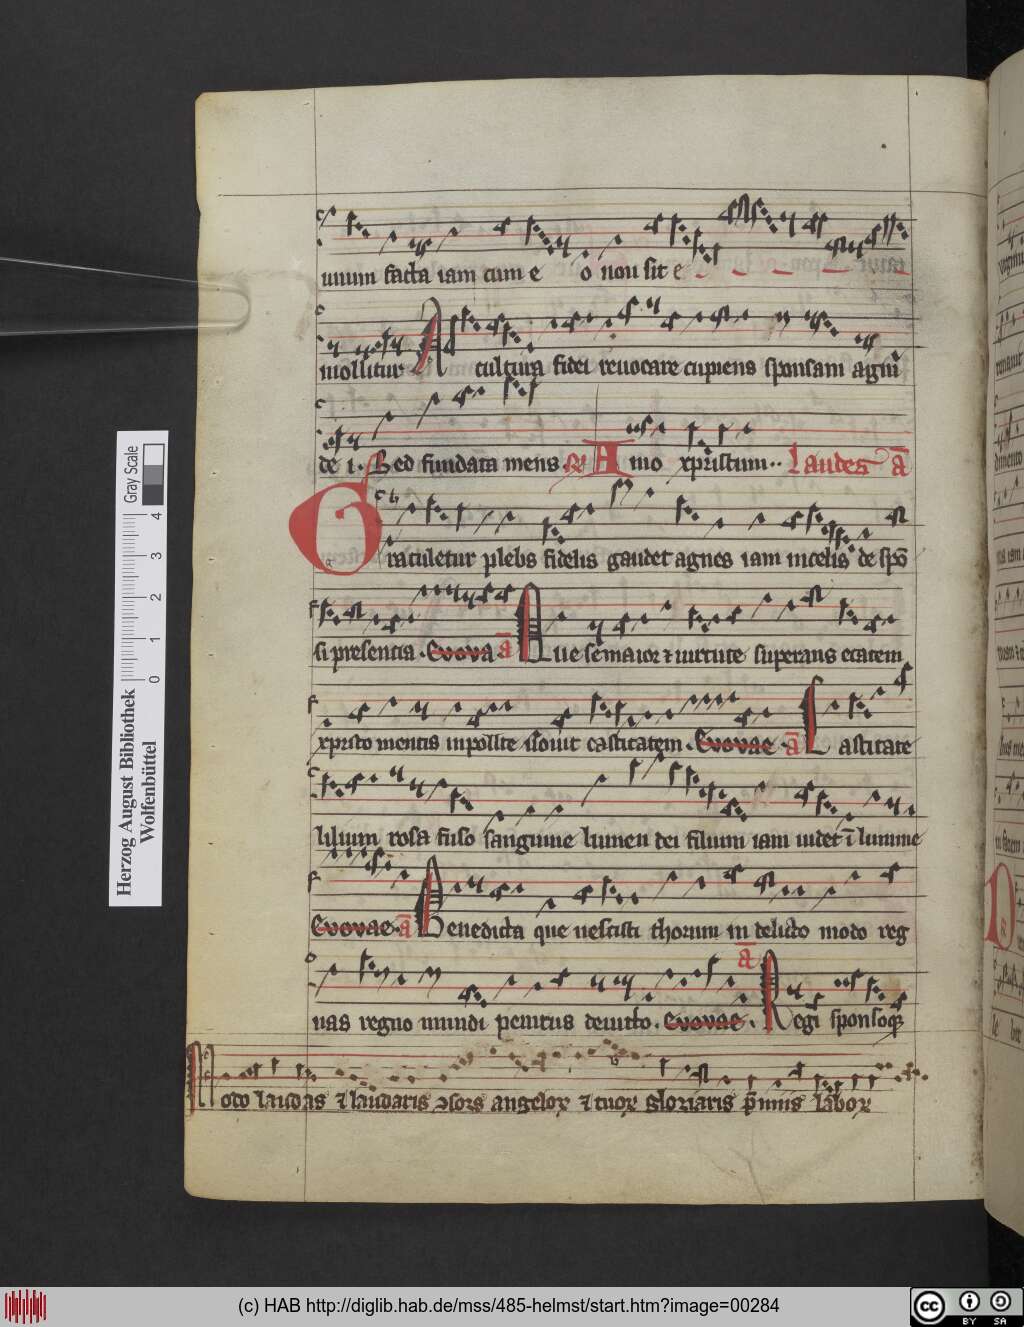 unum facta iam cum e o non sit e
mollitur A cultura fidei reuocare cupiens sponsam agni
de i. Sed fundata mens. A mo xpristum.. Laudes a̅
Gratuletur plebs fidelis gaudet agnes iam in celis de spo̅
si presentia. Euova a̅ Que se maior et uirtute superans etatem
xpristo mentis in castitatem. Euovae. a̅ Castitate
lilium rosa fuso sanguine lumen dei filium iam uidet i̅ lumine
Euovae. a̅ Benedicta que uestisti thorum in delicto modo reg
nas regno mundi penitus deuicto. Euovae. a̅ Regi sponsoq
laudas angelor gloriaris
Herzog August Bibliothek
Wolfenbüttel
Gray Scale
0 1 2 3 4
(c) HAB http://diglib.hab.de/mss/485-helmst/start.htm?image=00284
cc BY SA